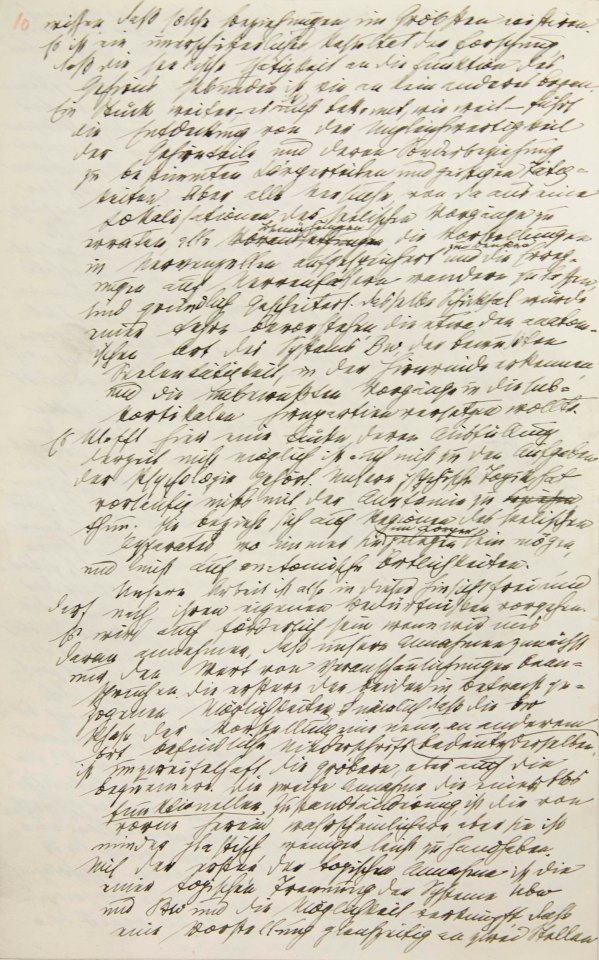 10
wissen daß solche Beziehungen im Gröbsten existiren.
Es ist ein unerschütterliches Resultat der Forschung
daß die seelische Tätigkeit an die Funktion des
Gehirns gebunden ist wie an kein anderes Organ.
Ein Stück weiter – es ist nicht bekannt, wie weit – führt
die Entdeckung von der Ungleichwertigkeit
der Gehirnteile und deren Sonderbeziehung
zu bestimmten Körperteilen und geistigen Tätig-
keiten. Aber alle Versuche von da aus eine
Lokalisation der seelischen Vorgänge zu
Bemühungen
erraten, alle die Vorstellungen
zu denken
in Nervenzellen aufgespeichert und die Erreg-
ungen auf Nervenfasern wandern zu lassen,
sind gründlich gescheitert. Dasselbe Schicksal würde
einer Lehre bevorstehen die etwa den anatom-
ischen Ort des Systems Bw, der bewußten
Seelentätigkeit, in der Hirnrinde erkennen,
und die unbewußten Vorgänge in die sub-
kortikalen Hirnpartien versetzen wollte.
Es klafft hier eine Lücke, deren Ausfüllung
derzeit nicht möglich ist auch nicht zu den Aufgaben
der Psychologie gehört. Unsere psychische Topik hat
vorläufig nichts mit der Anatomie zu
thun. Sie bezieht sich auf Regionen des seelischen
im Körper
Apparates, wo immer sie gelegen sein mögen,
und nicht auf anatomische Örtlichkeiten.
Unsere Arbeit ist also in dieser Hinsicht frei und
darf nach ihren eigenen Bedürfnissen vorgehen.
Es wird auch förderlich sein wenn wir uns
daran, daß unsere Annahmen zunächst
nur den Wert von Veranschaulichungen bean-
spruchen. Die erstere der beiden in Betracht ge-
zogenen Möglichkeiten, nämlich daß die bw
Phase der Vorstellung eine neue, an anderem
Ort befindliche Niederschrift bedeute derselben,
ist unzweifelhaft die gröbere, aber auch die
bequemere. Die zweite Annahme, die eines blos
funktionellen, ist die von
vorne herein wahrscheinlichere, aber sie ist
minder plastisch, weniger leicht zu handhaben.
Mit der ersten, der topischen Annahme ist die
einer topischen Trennung der Systeme Ubw
und Bw und die Möglichkeit verknüpft, daß
eine Vorstellung gleichzeitig an zwei Stellen